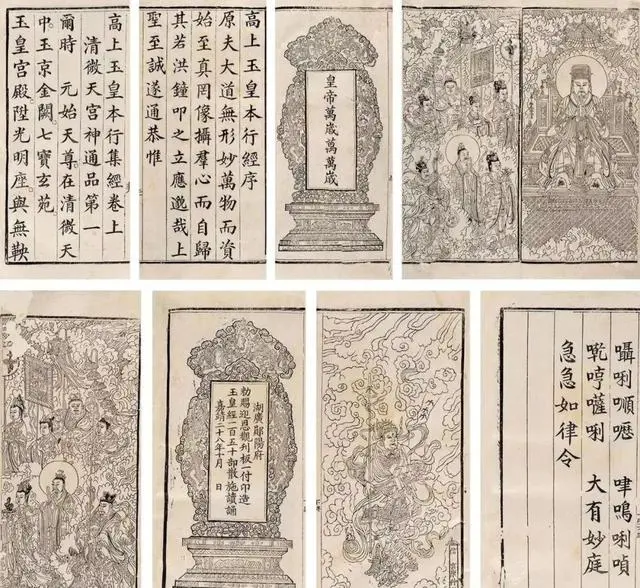 高上玉皇本行集經卷上
清微天宮神通品第一
爾時 元始天尊在清微天
中玉京金闕七寶玄苑
玉皇宮殿陞光明座與無鞅
高上玉皇本行經序
原夫大道無形妙萬物而資
始至真罔像攝羣心而自歸
其若洪鐘叩之立應邈哉上
聖至誠遂通恭惟
皇帝萬歲萬萬歲
湖廣鄖陽府
勅賜迎恩觀刋板一付印造
玉皇經一百五十部散施讀誦
嘉靖二十八年十月 日
大有妙庭
急急如律令